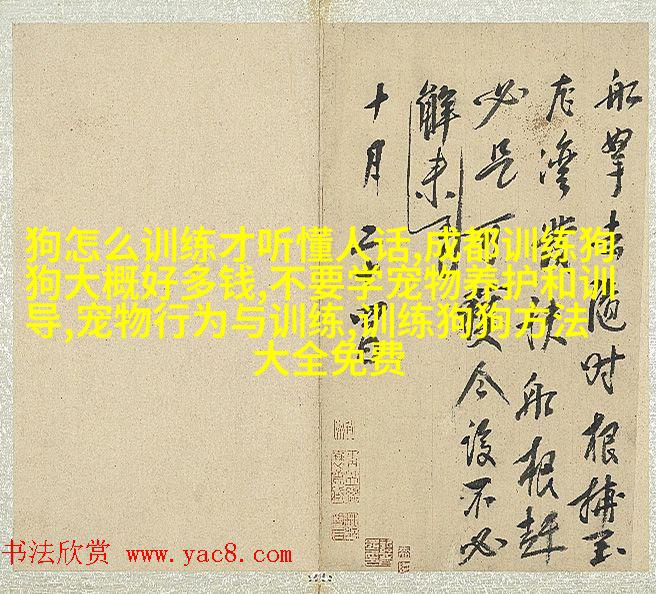 狗怎么训练才听懂人话,成都训练狗
狗大概好多钱,不要学宠物养护和训
导,宠物行为与训练,训练狗狗方法
大全免费
船去隨时根捕至
灣船根赶
必是令後不必
解来
十月二日
书法欣赏 www.yac8.com